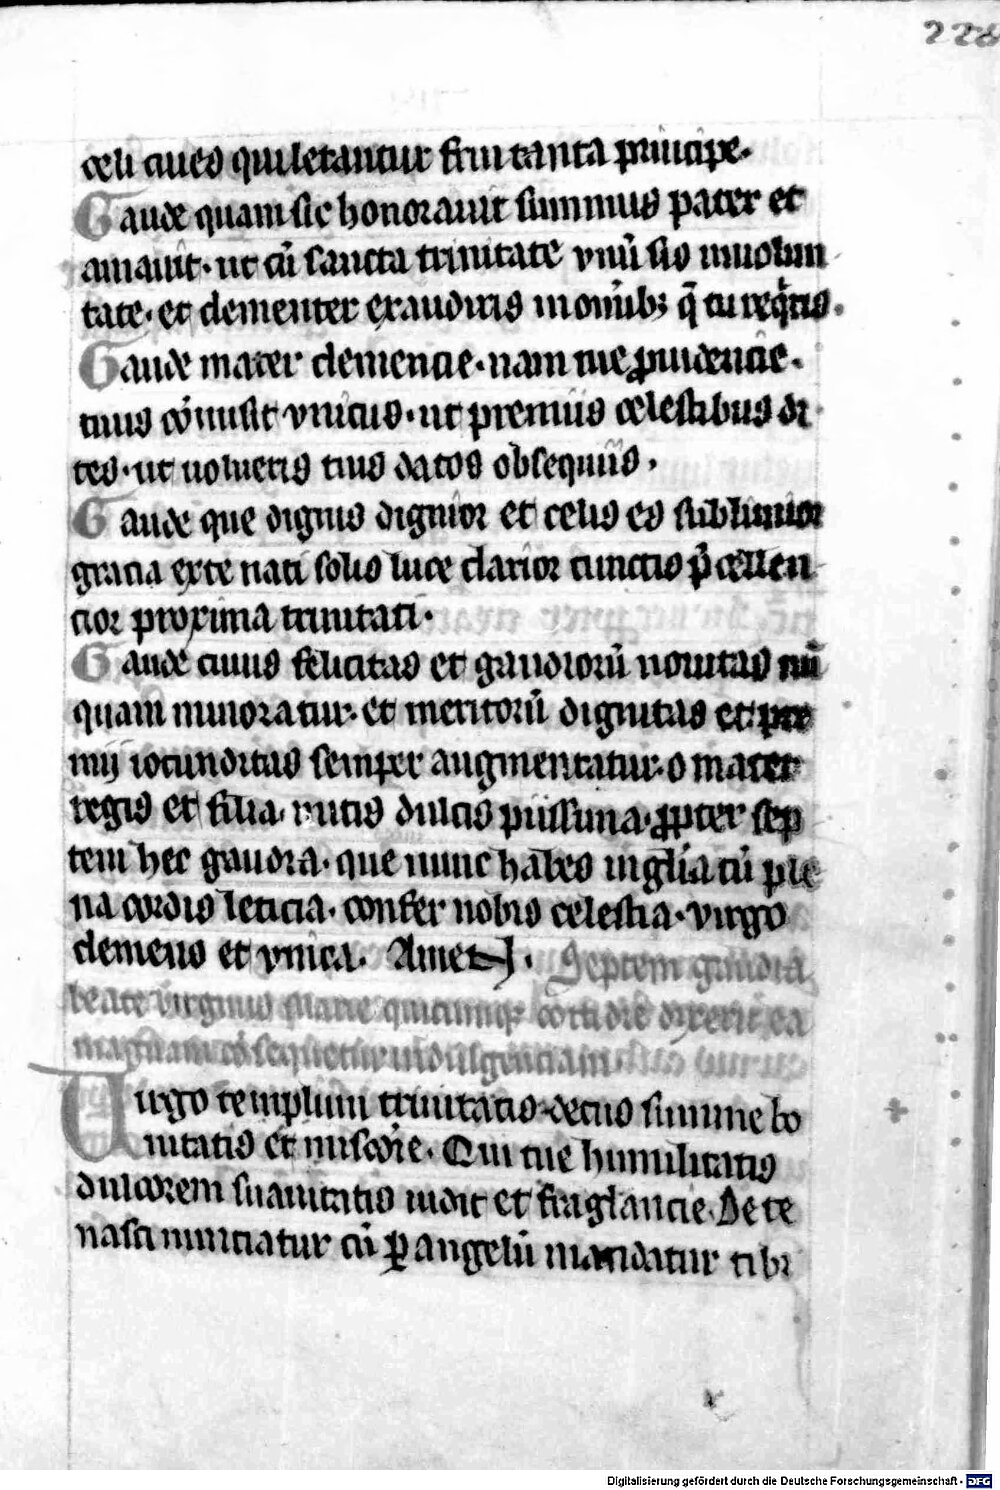 228
celi ciues qui letantur frui tanta principe.
Gaude quam sic honorauit summus pater et
amauit. ut cū sancta trinitate vnū sis in uolun
tate. et clementer exaudiris in omībꝫ q̄ tu reqͥris.
Gaude mater clemencie. nam tue ꝓuidencie.
tuus cōmisit vnicus. ut premiis celestibus di
tes. ut uolueris tuis datos obsequiis.
Gaude que dignis dignior et celis es sublimior
gracia ex te nati solis luce clarior cunctis p̄cellen
cior proxima trinitati.
Gaude cuius felicitas et gaudiorū nouitas nū
quam minoratur. et meritorū dignitas et pre
mij iocunditas semper augmentatur. o mater
regis et filia. uitis dulcis piissima. ꝓpter sep
tem hec gaudia. que nunc habes in glīa cū ple
na cordis leticia. confer nobis celestia. virgo
clemens et vnica. Amen. Septem gaudia
beate virginis Marie quicumqꝫ cottidie dixerit ea
magnam cōsequetur indulgenciam
Uirgo templum trinitatis. decus summe bo
nitatis et miscd̄ie. Qui tue humilitatis
dulcorem suauitatis uidit et fraglancie. De te
nasci nunciatur cū ꝑ angelū mandatur tibi
Digitalisierung gefördert durch die Deutsche Forschungsgemeinschaft - DFG